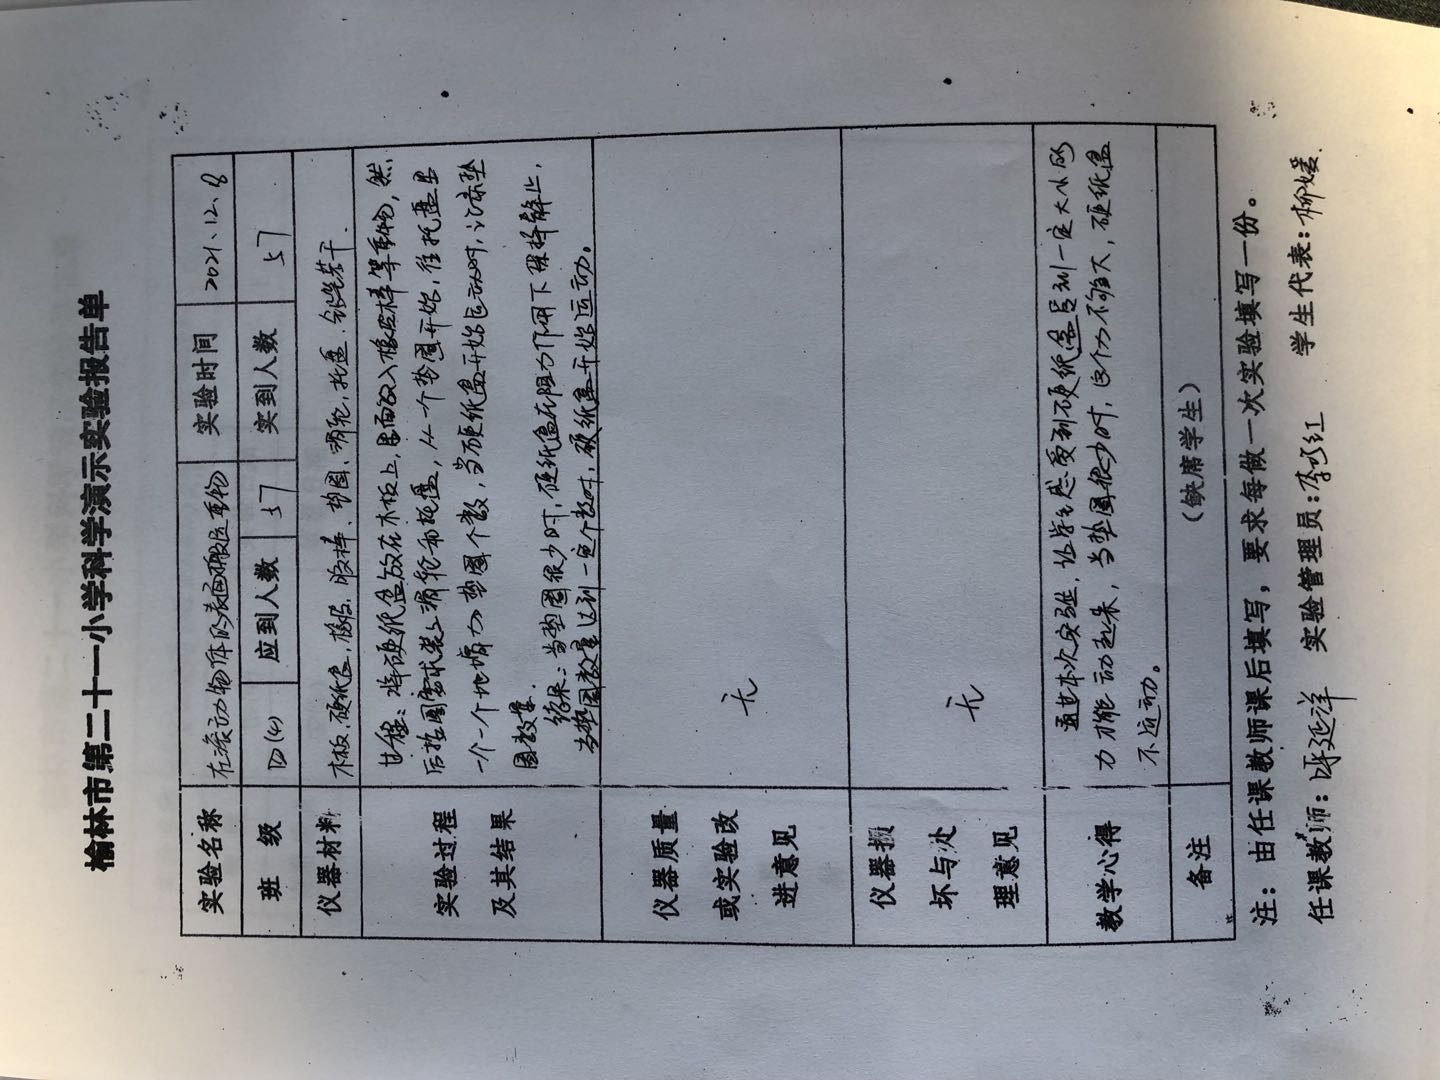 榆林市第二十一小学科学演示实验报告单
实验名称 在滚动物体的表面搬运重物 实验时间 2021.12.8
班 级 四(4) 应到人数 57 实到人数 57
仪器材料 木板、硬纸盒、橡皮、胶棒、垫圈、滑轮、托盘、铅笔若干.
实验过程
及其结果
过程：将硬纸盒放在木板上，里面放入橡皮、胶棒等重物，然
后按图需求装上滑轮和托盘，从一个垫圈开始，往托盘里
一个一个地增加垫圈个数，当硬纸盒开始运动时，记录垫
圈数量.
结果：当垫圈很少时，硬纸盒在阻力作用下保持静止，
当垫圈数量达到一定个数时，硬纸盒开始运动。
仪器质量
或实验改
进意见
无
仪器损
坏与处
理意见
无
教学心得
通过本次实验，让学生感受到硬纸盒受到一定大小的
力才能动起来，当垫圈很少时，这个力不够大，硬纸盒
不运动。
备注 （缺席学生）
注：由任课教师课后填写，要求每做一次实验填写一份。
任课教师：延祥 实验管理员：李红 学生代表：柳媛.